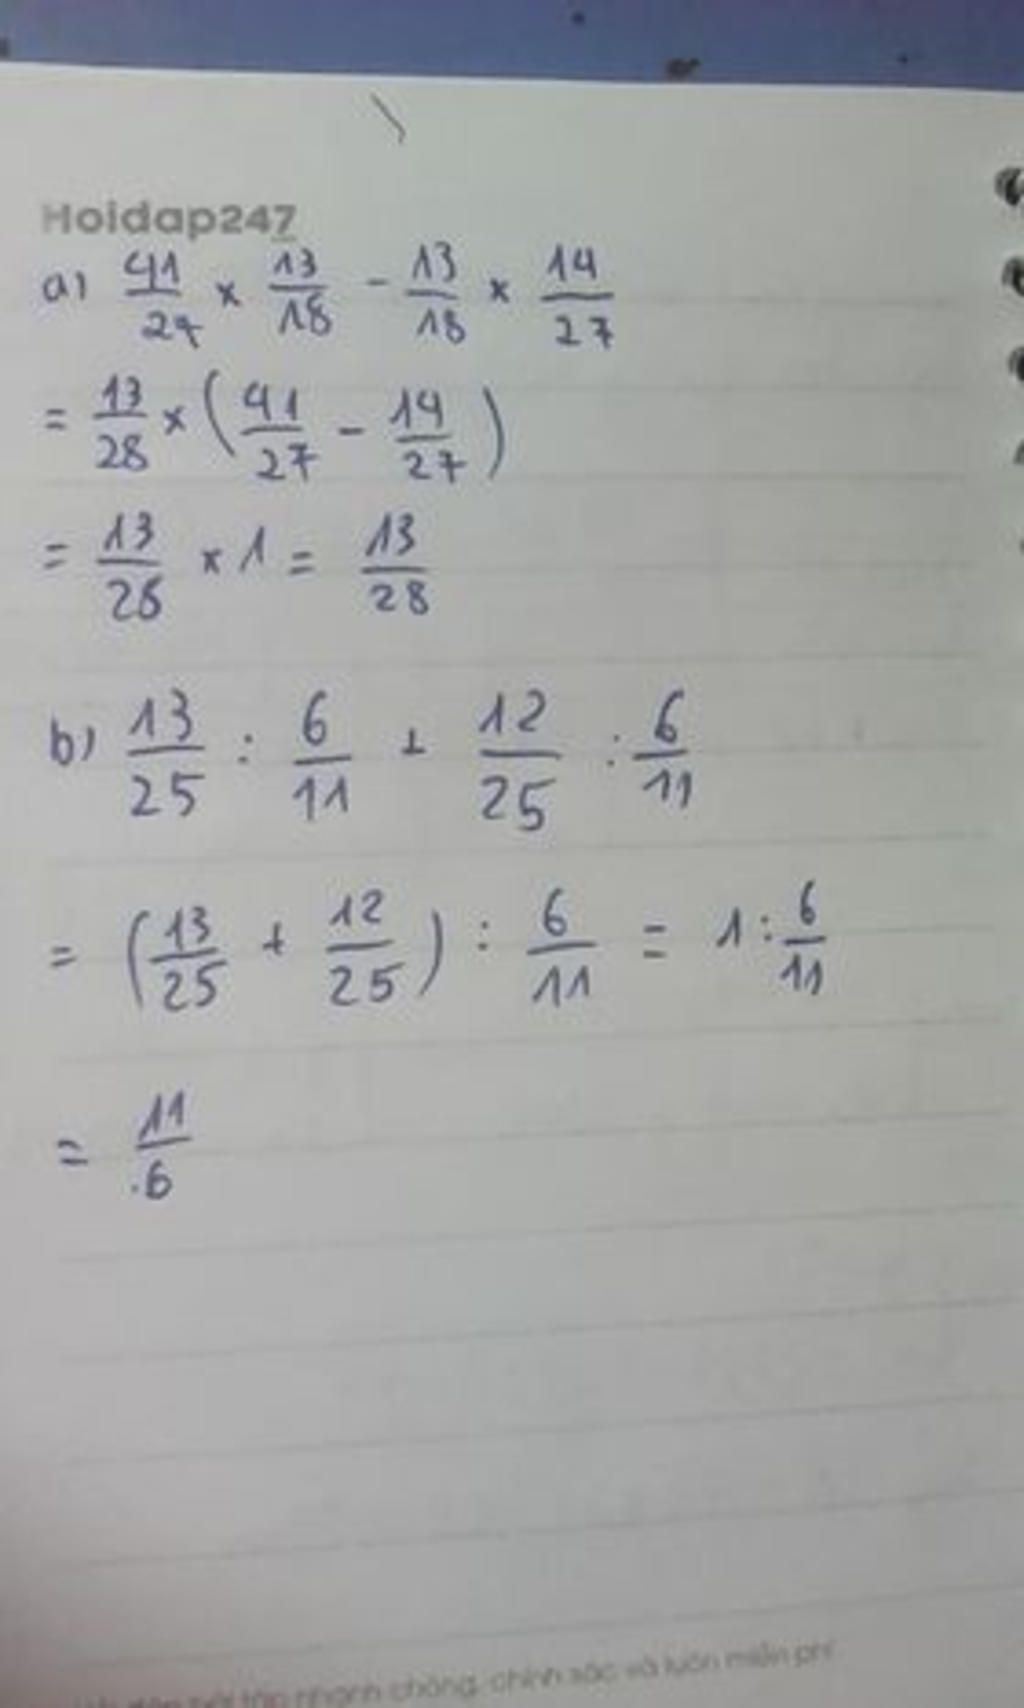 Hoidap247
a) 41/27 × 13/18 - 13/18 × 14/27
= 13/28 × (41/27 - 14/27)
= 13/28 × 1 = 13/28
b) 13/25 : 6/11 + 12/25 : 6/11
= (13/25 + 12/25) : 6/11 = 1 : 6/11
= 11/6
nhanh chóng, chính xác và luôn miễn phí